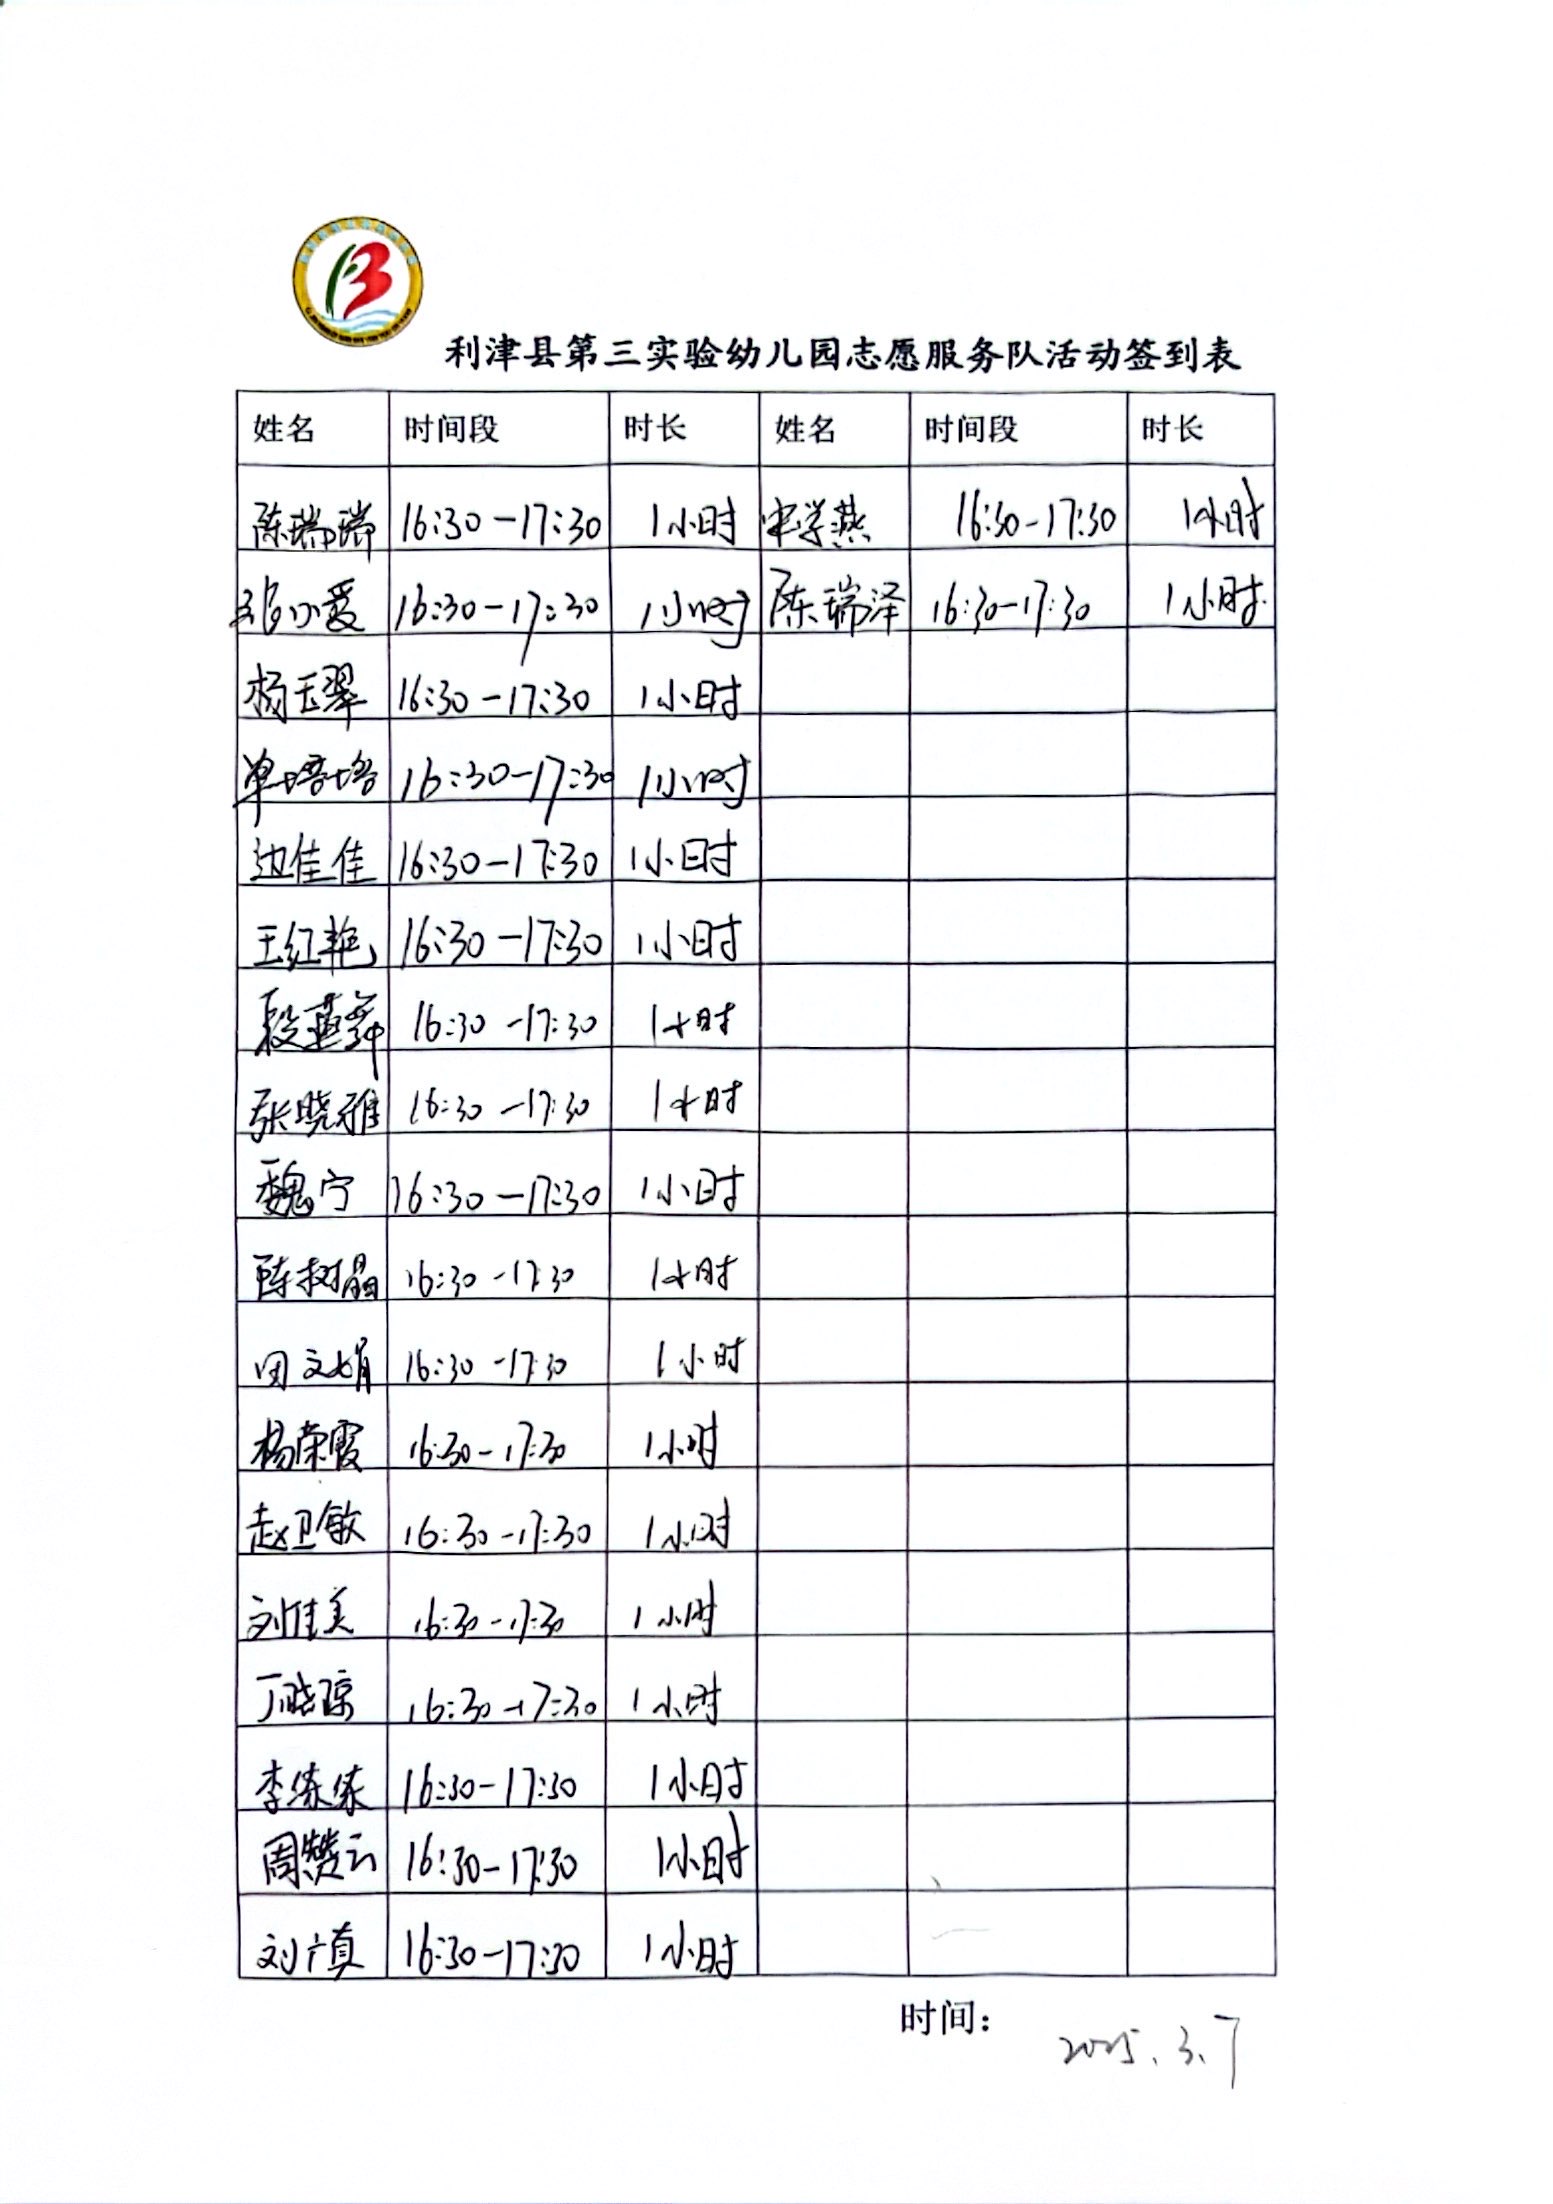 利津县第三实验幼儿园志愿服务队活动签到表
姓名 时间段 时长 姓名 时间段 时长
陈瑞瑞 16:30-17:30 1小时 申学燕 16:30-17:30 1小时
张小爱 16:30-17:30 1小时 陈瑞泽 16:30-17:30 1小时
杨玉翠 16:30-17:30 1小时
单培培 16:30-17:30 1小时
边佳佳 16:30-17:30 1小时
王红艳 16:30-17:30 1小时
段燕舞 16:30-17:30 1小时
张晓雅 16:30-17:30 1小时
魏宁 16:30-17:30 1小时
陈树晶 16:30-17:30 1小时
田文娟 16:30-17:30 1小时
杨荣霞 16:30-17:30 1小时
赵卫敏 16:30-17:30 1小时
刘佳美 16:30-17:30 1小时
丁晓琼 16:30-17:30 1小时
李练练 16:30-17:30 1小时
周赞云 16:30-17:30 1小时
刘广真 16:30-17:30 1小时
时间: 2025.3.7